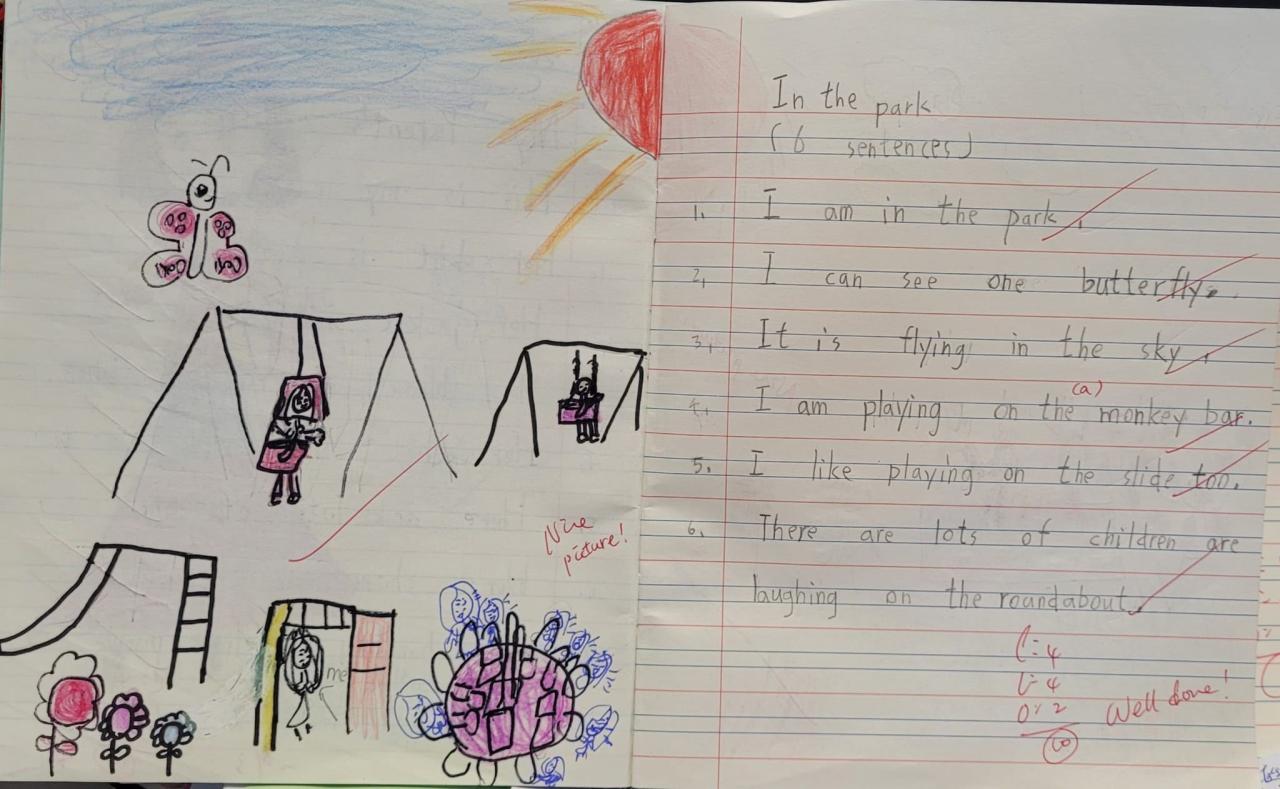 In the park
(6 sentences)
1. I am in the park.
2. I can see one butterfly.
3. It is flying in the sky.
(a)
4. I am playing on the monkey bar.
5. I like playing on the slide too.
6. There are lots of children are
laughing on the roundabout.
Nice
picture!
me
C: 4
L: 4
O: 2
10
Well done!